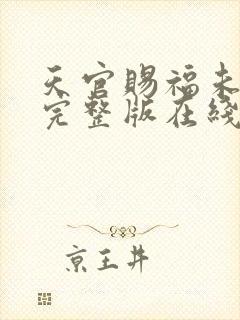 天官賜福未
完整版在綫
京王井